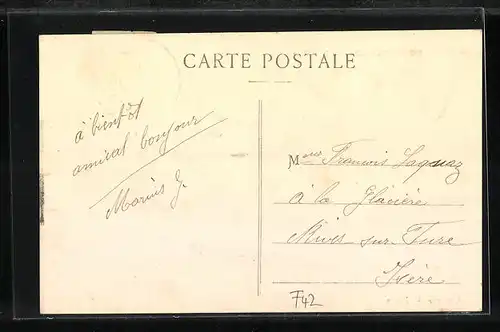 CARTE POSTALE
à bientôt
amical bonjour
Marius J.
Mons François Laquaz
à la Glacière
Rives sur Fure
Isère
F42